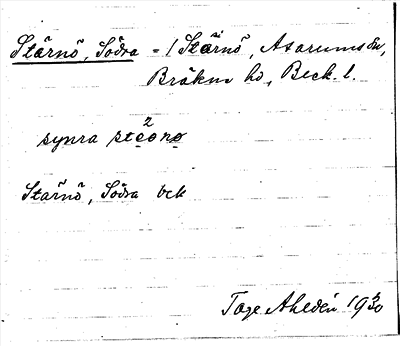 Stärnö, Södra = / Stärnö, Asarums sn,
Bräkne hd, Blek. l.
synra
Stärnö, Södra bek
Tage Ahldén 1930